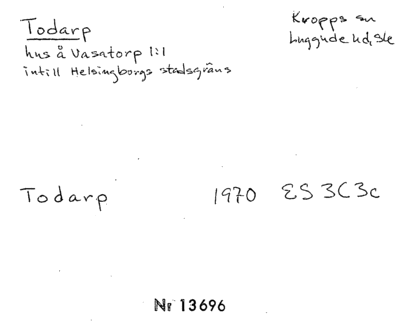 Todarp
hus å Vasatorp 1:1
intill Helsingborgs stadsgräns
Kropps sn
Luggude hd, Sk
Todarp 1970 ES 3C3c
Nr 13696